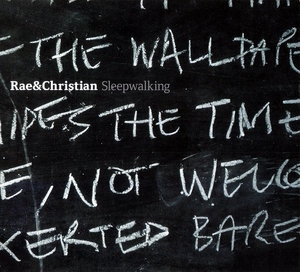 F THE WALLPAPE
Rae&Christian Sleepwalking
IDES THE TIME
E, NOT WELCO
XERTED BARE